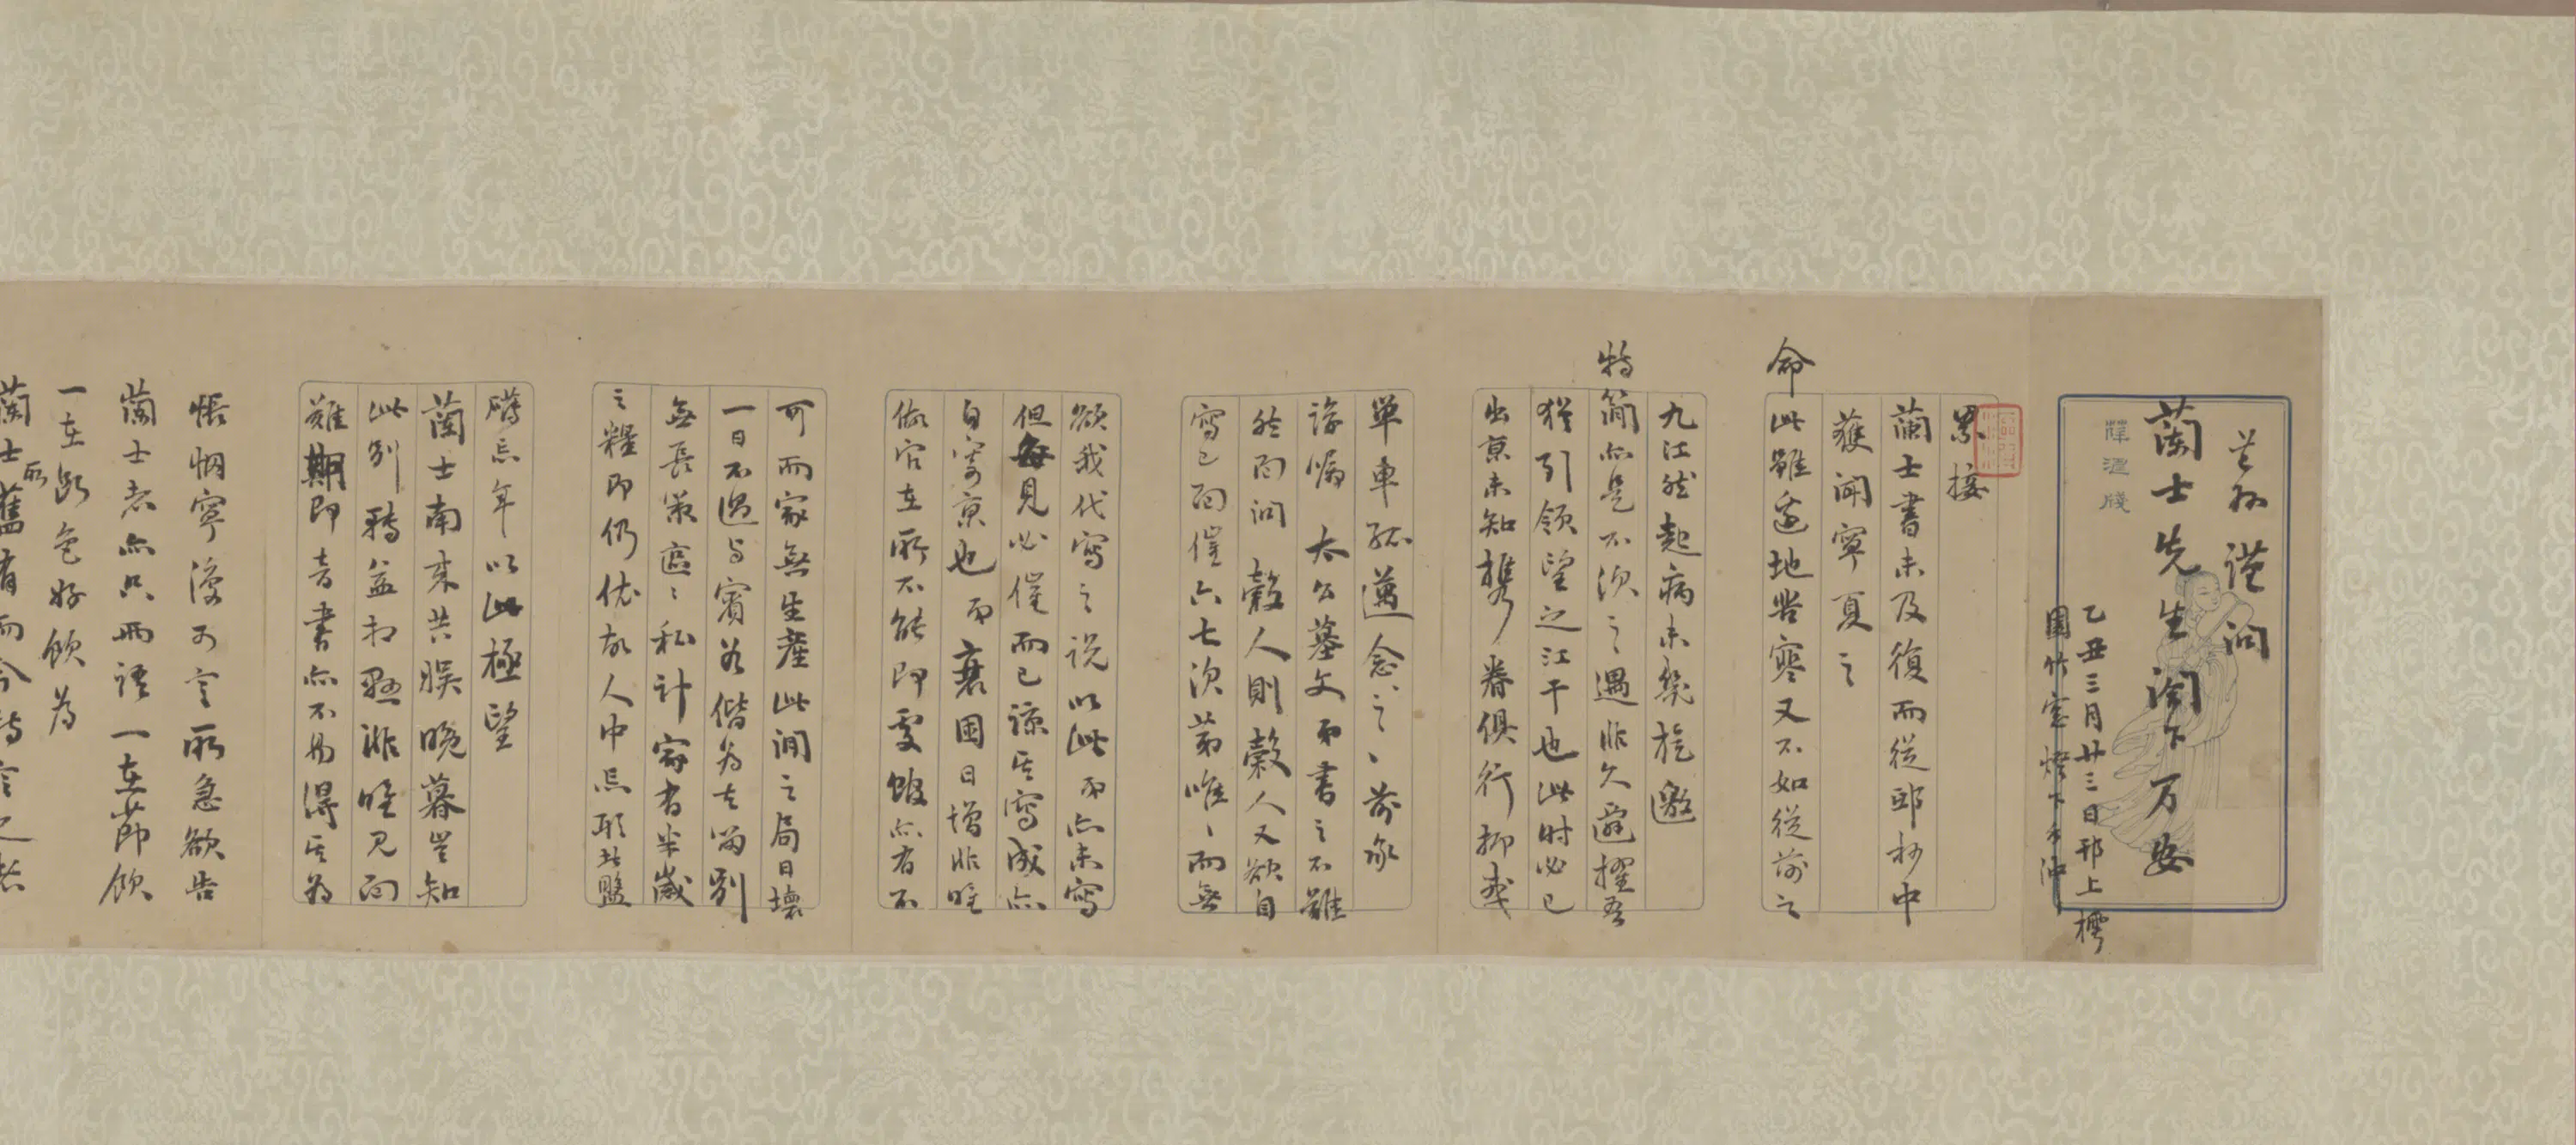 芒孫謹問
蘭士先生閣下万安
薛濤牋
乙丑三月廿三日邗上櫻
園竹窗燈下手沖
累接
蘭士書未及復而從邸抄中
獲聞寧夏之
命此雖邊地苦寒又不如從前之
九江然起病未幾旋邀
特簡亦是不次之遇非久遷擢吾
猶引領望之江干也此時必已
出京未知攜眷俱行抑或
單車孤邁念之念之前承
諄囑太公墓文弟書之不難
然面問穀人則穀人又欲自
寫已面催六七次第唯唯而無
欲我代寫之說以此弟亦未寫
但每見必催而已諒其寫成亦
自寄京也弟衰困日增非唯
做官在所不能即受餽亦有不
可而家無生產此間之局日壞
一日不過與賓谷偕為去留別
無長策區區私計家者半歲
之糧即仍依故人中丞耶北監
礪忘年以此極望
蘭士南來共娛晚暮豈知
此別轉益相懸非唯見面
難期即音書亦不易得其為
悵惘寧復可言所急欲告
蘭士者亦只兩語一在節飲
一在斷色好飲為
蘭士所舊有而今時官之甚